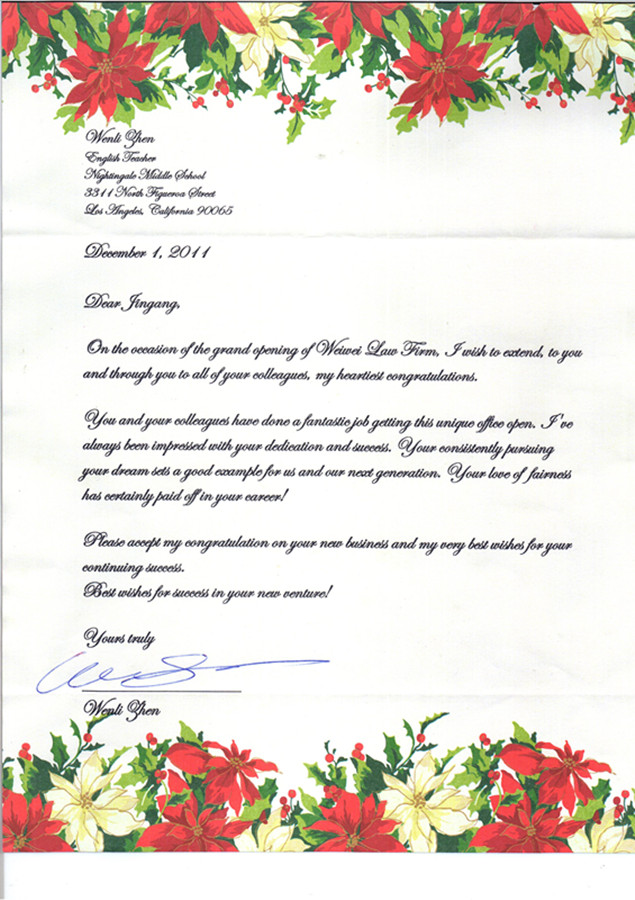 Wenli Zhen
English Teacher
Nightingale Middle School
3311 North Figueroa Street
Los Angeles, California 90065
December 1, 2011
Dear Jingang,
On the occasion of the grand opening of Weiwei Law Firm, I wish to extend, to you
and through you to all of your colleagues, my heartiest congratulations.
You and your colleagues have done a fantastic job getting this unique office open. I've
always been impressed with your dedication and success. Your consistently pursuing
your dream sets a good example for us and our next generation. Your love of fairness
has certainly paid off in your career!
Please accept my congratulation on your new business and my very best wishes for your
continuing success.
Best wishes for success in your new venture!
Yours truly
Wenli Zhen